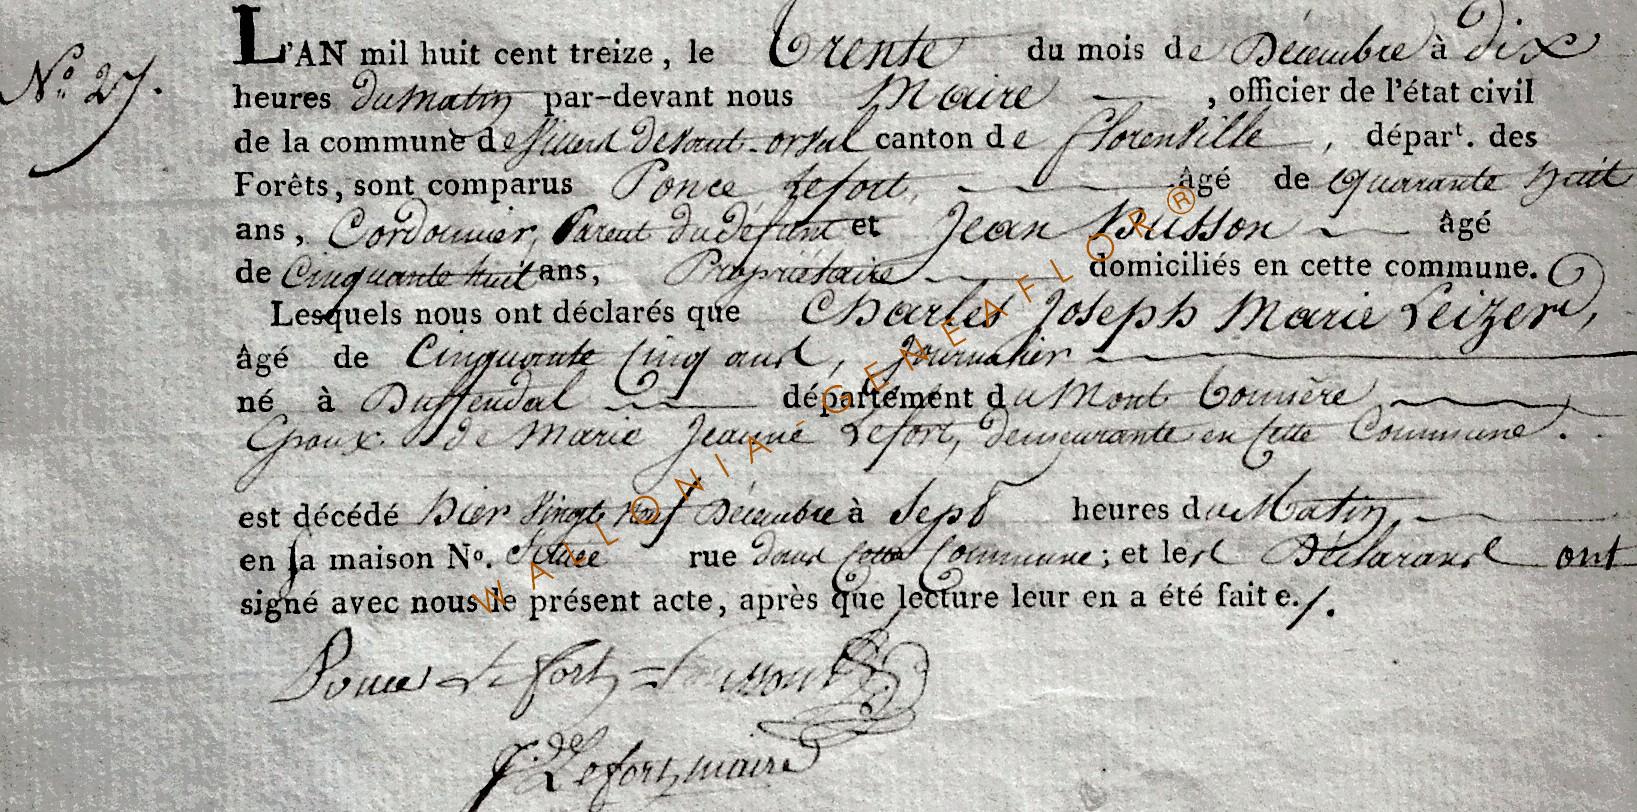 N.º 27.
L'AN mil huit cent treize, le Trente du mois de Décembre à dix
heures du Matin par-devant nous Maire , officier de l'état civil
de la commune de Villers devant-orval canton de florenville , départ. des
Forêts, sont comparus Ponce Lefort, âgé de Quarante huit
ans, Cordonnier, Parent du défunt et Jean Busson âgé
de Cinquante huit ans, Propriétaire domiciliés en cette commune.
Lesquels nous ont déclarés que Charles Joseph Marie Leizer,
âgé de Cinquante Cinq ans, Journalier
né à Duffendal département du Mont Tonnère
Epoux de Marie Jeanne Lefort, demeurante en Cette Commune.
est décédé hier Vingte Neuf Décembre à Sept heures du Matin,
en sa maison Nº. Située rue dans Cette Commune; et les Déclarans ont
signé avec nous le présent acte, après que lecture leur en a été faite./.
Ponce Lefort
J. Lefort, maire
WALLONIA - GENEAFLOR ®